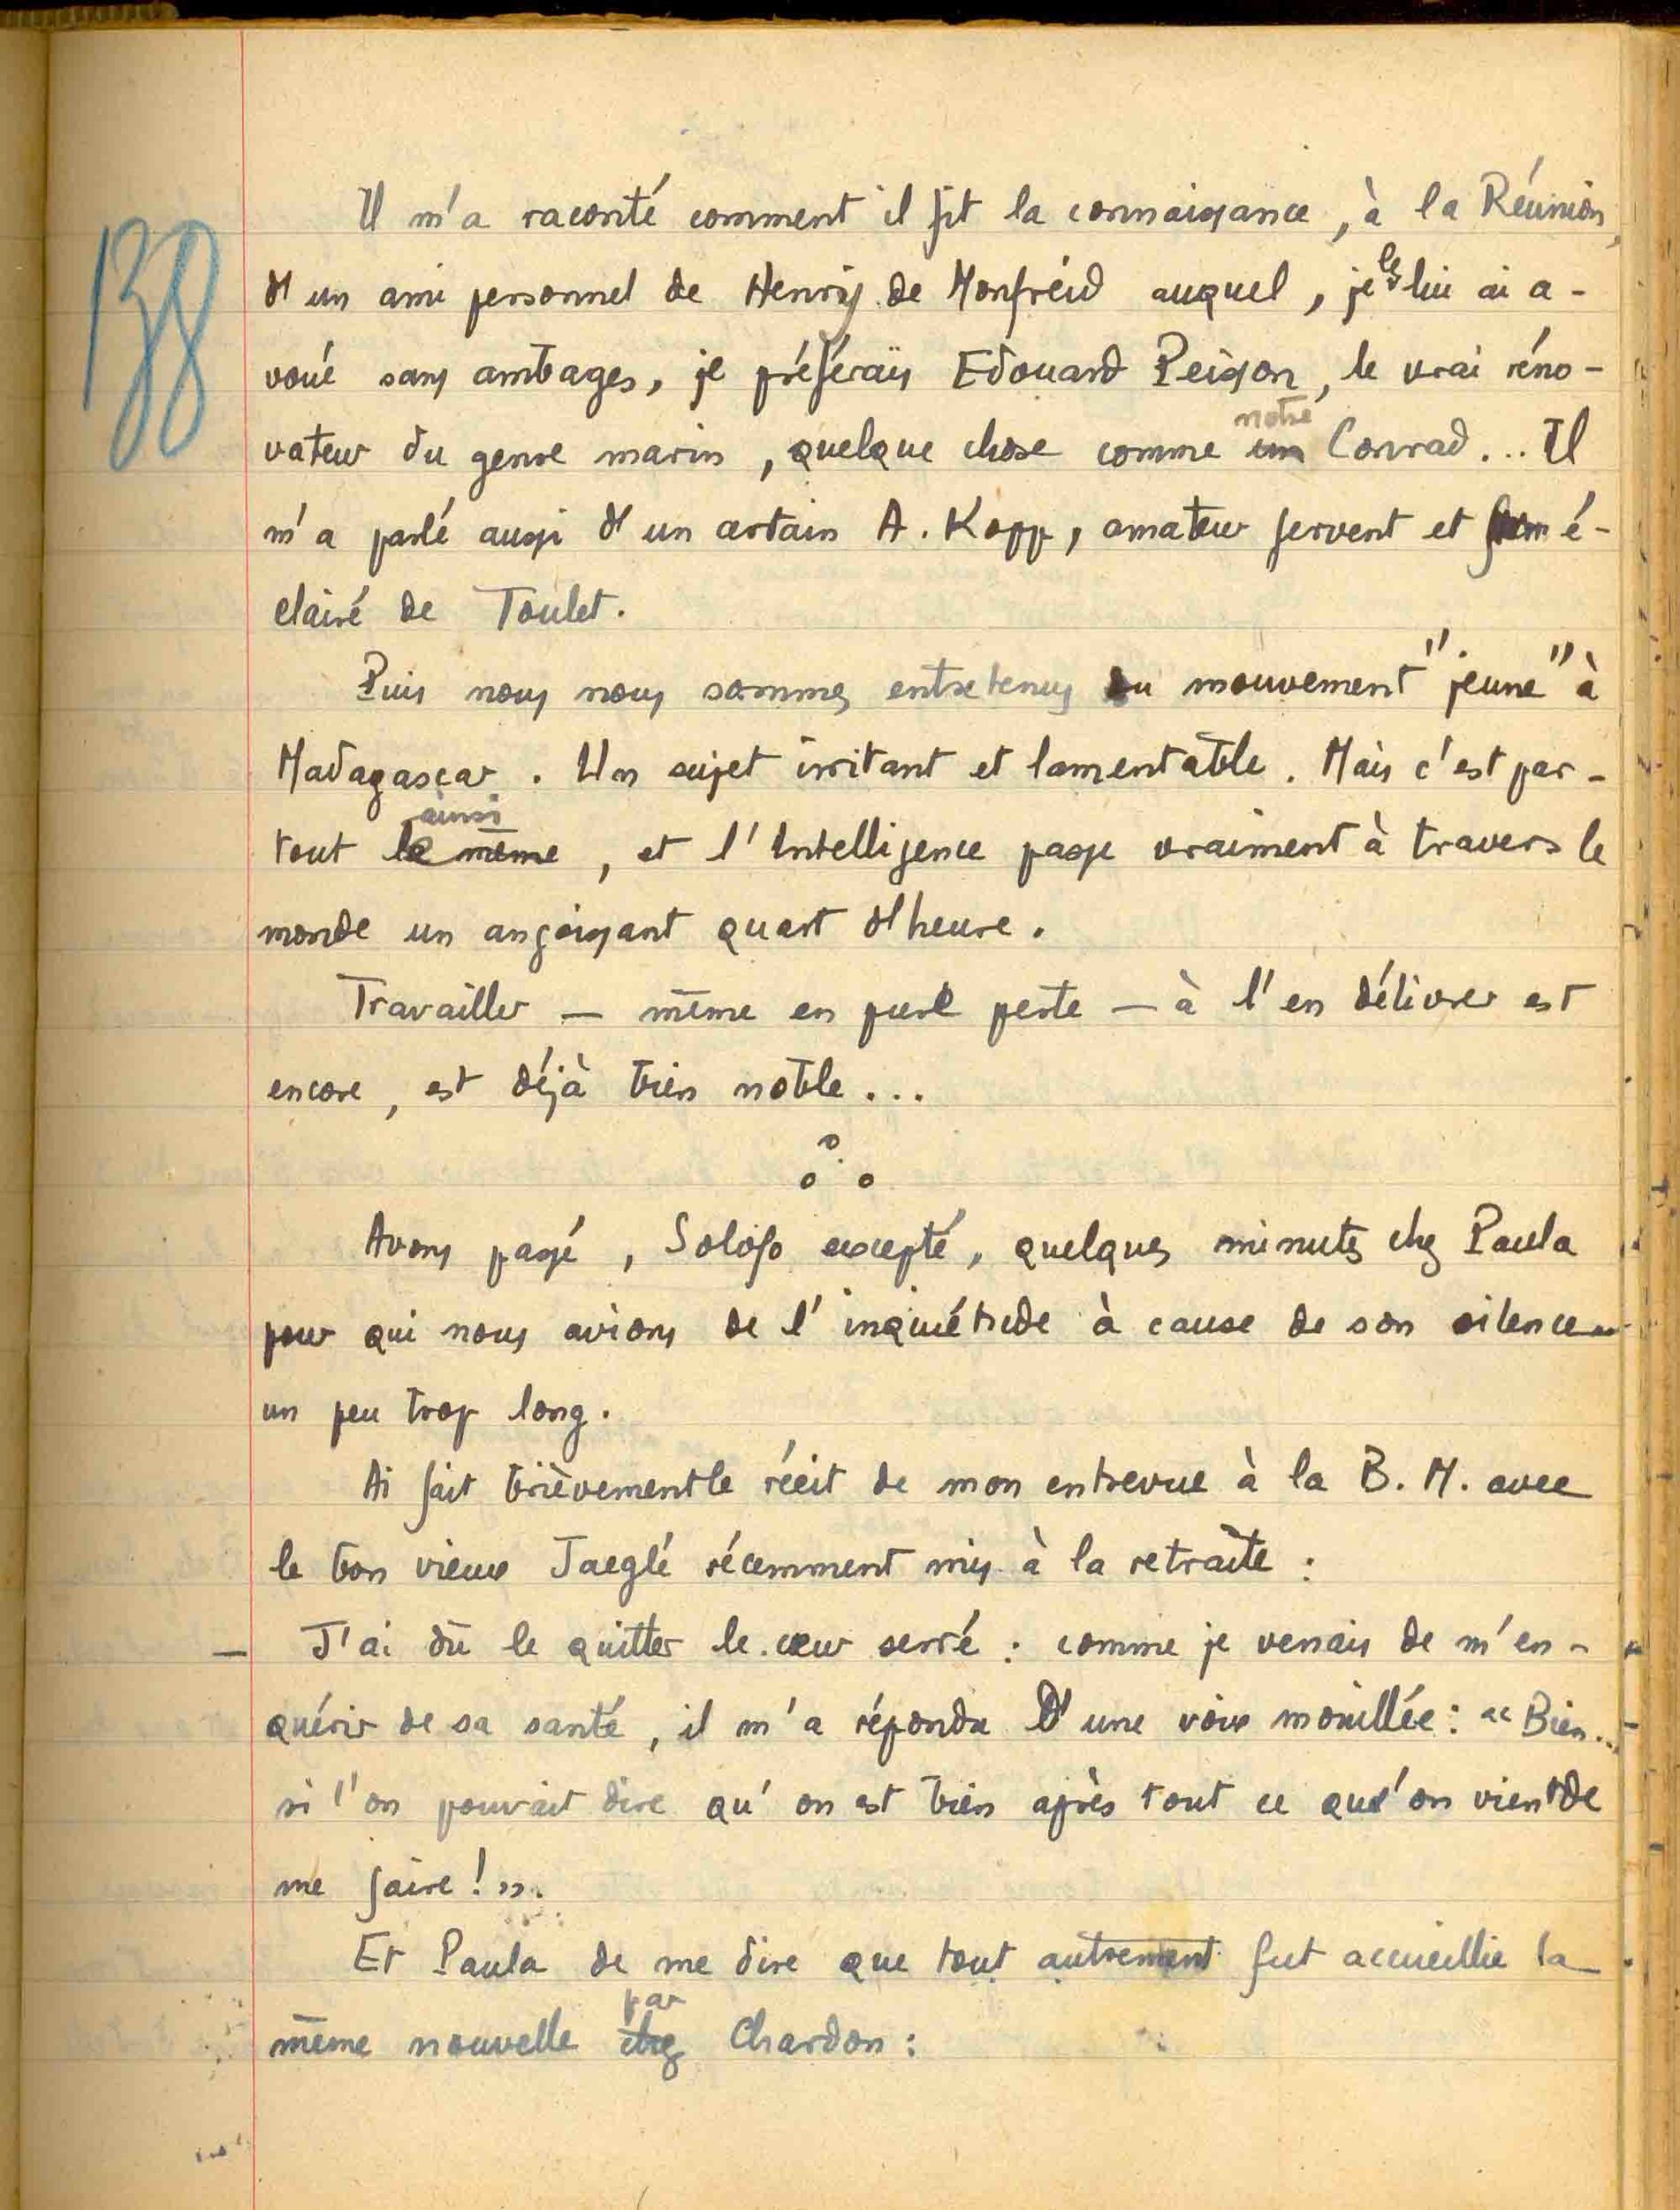 138
Il m'a raconté comment il fit la connaissance, à la Réunion,
d'un ami personnel de Henry de Monfreid auquel, je le lui ai a-
voué sans ambages, je préférais Edouard Peisson, le vrai réno-
vateur du genre marin, quelque chose comme notre Conrad... Il
m'a parlé aussi d'un certain A. Kopp, amateur fervent et é-
clairé de Toulet.
Puis nous nous sommes entretenus du mouvement "jeune" à
Madagascar. Un sujet irritant et lamentable. Mais c'est par-
tout ainsi, et l'Intelligence passe vraiment à travers le
monde un angoissant quart d'heure.
Travailler — même en pure perte — à l'en délivrer est
encore, est déjà bien noble...
Avons passé, Solofo excepté, quelques minutes chez Paula
pour qui nous avions de l'inquiétude à cause de son silence
un peu trop long.
Ai fait brièvement le récit de mon entrevue à la B. M. avec
le bon vieux Jaeglé récemment mis à la retraite :
— J'ai dû le quitter le cœur serré : comme je venais de m'en-
quérir de sa santé, il m'a répondu d'une voix mouillée : « Bien...
si l'on pouvait dire qu'on est bien après tout ce qu'on vient de
me faire ! ».
Et Paula de me dire que tout autrement fut accueillie la
même nouvelle par Chardon :